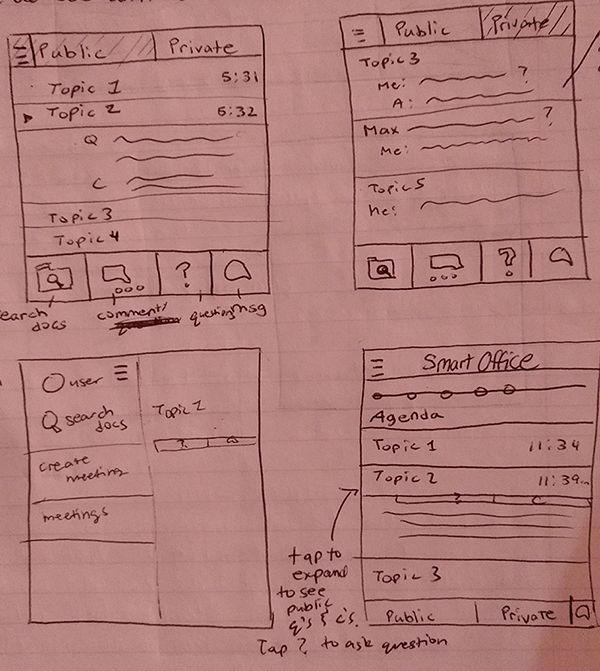 Public Private
Topic 1 5:31
Topic 2 5:32
Q
C
Topic 3
Topic 4
docs
comment/
question
question
msg
Public Private
Topic 3
Me: ?
A:
Max ?
Me:
Topic 5
Me:
?
user
search
docs
create
meeting
meetings
Topic 2
?
Smart Office
Agenda
Topic 1 11:34
Topic 2 11:39
? C
Topic 3
Public Private
tap to
expand
to see
public
q's & c's.
Tap ? to ask question